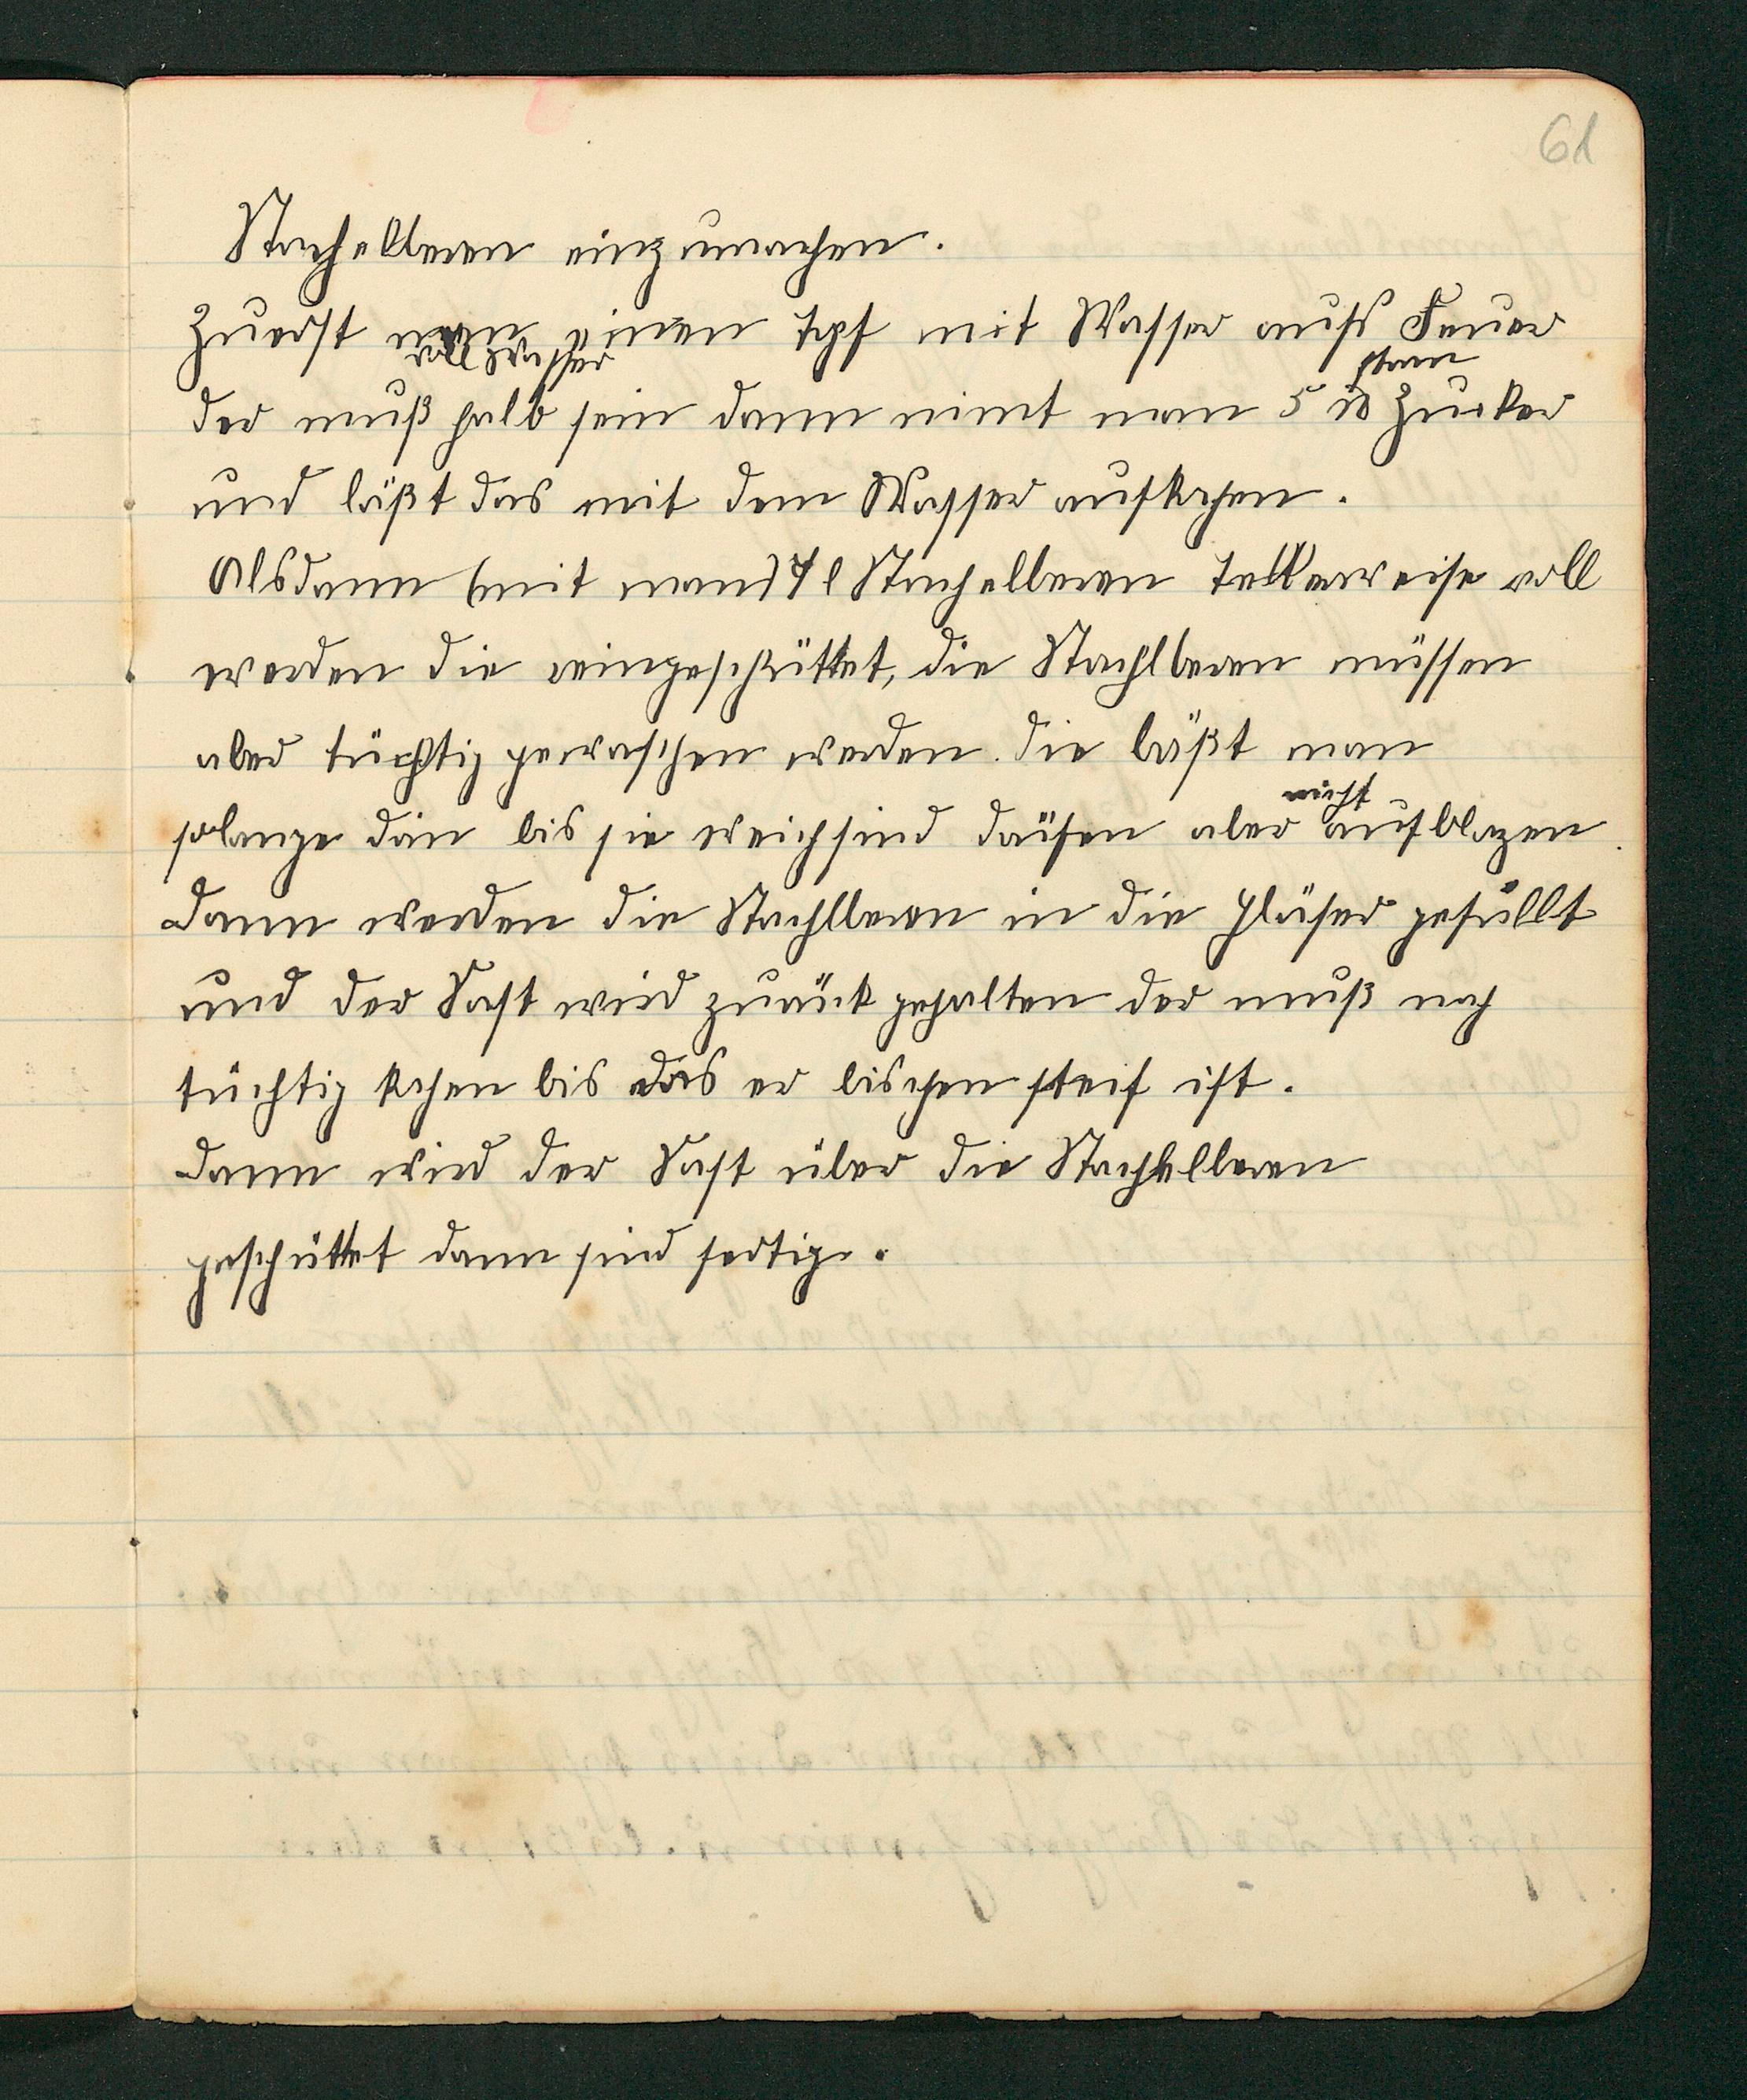 61
Stachelberen einzumachen.
Zuerst man einen Topf mit Wasser aufs Feuer
voll Wasser
der muß halb sein dann nimt man 5 ℔ Zucker
und läßt das mit dem Wasser aufkochen.
Alsdann (mit man) 4 l Stachelberen Tellerweise voll
werden die reingeschüttet, die Stachlberen müssen
aber tüchtig gewaschen werden. die läßt man
nicht
solange din bis sie weich sind däufen aber aufblazen.
dann werden die Stachlberen in die Gläser gefüllt
und der Saft wird zurück gehalten der muß noch
tüchtig kochen bis das er bischen steif ist.
dann wird der Saft über die Stachelberen
geschüttet dann sind fertig.